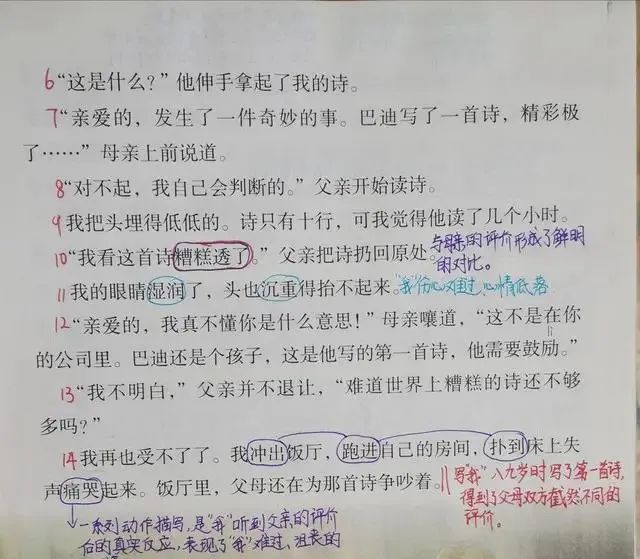 6“这是什么？”他伸手拿起了我的诗。
7“亲爱的，发生了一件奇妙的事。巴迪写了一首诗，精彩极
了……”母亲上前说道。
8“对不起，我自己会判断的。”父亲开始读诗。
9我把头埋得低低的。诗只有十行，可我觉得他读了几个小时。
10“我看这首诗糟糕透了。”父亲把诗扔回原处。
与母亲的评价形成了鲜明
的对比。
11我的眼睛湿润了，头也沉重得抬不起来。
“我”伤心难过，心情低落
12“亲爱的，我真不懂你是什么意思！”母亲嚷道，“这不是在你
的公司里。巴迪还是个孩子，这是他写的第一首诗，他需要鼓励。”
13“我不明白，”父亲并不退让，“难道世界上糟糕的诗还不够
多吗？”
14我再也受不了了。我冲出饭厅，跑进自己的房间，扑到床上失
声痛哭起来。饭厅里，父母还在为那首诗争吵着。
写“我”八九岁时写了第一首诗，
得到了父母双方截然不同的
评价。
一系列动作描写，是“我”听到父亲的评价
后的真实反应，表现了“我”难过、沮丧的